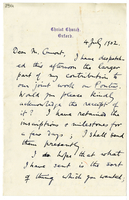 Christ Church
Oxford.
4 July 1902.
Dear M. Cumont,
I have despatched
this afternoon the larger
part of my contribution to
our joint work on Pontus.
Would you please kindly
acknowledge the receipt of
it? I have retained the
inscriptions & milestones for
a few days, & shall send
them presently.
I do hope that what
I have sent is the sort
of thing which you wanted,